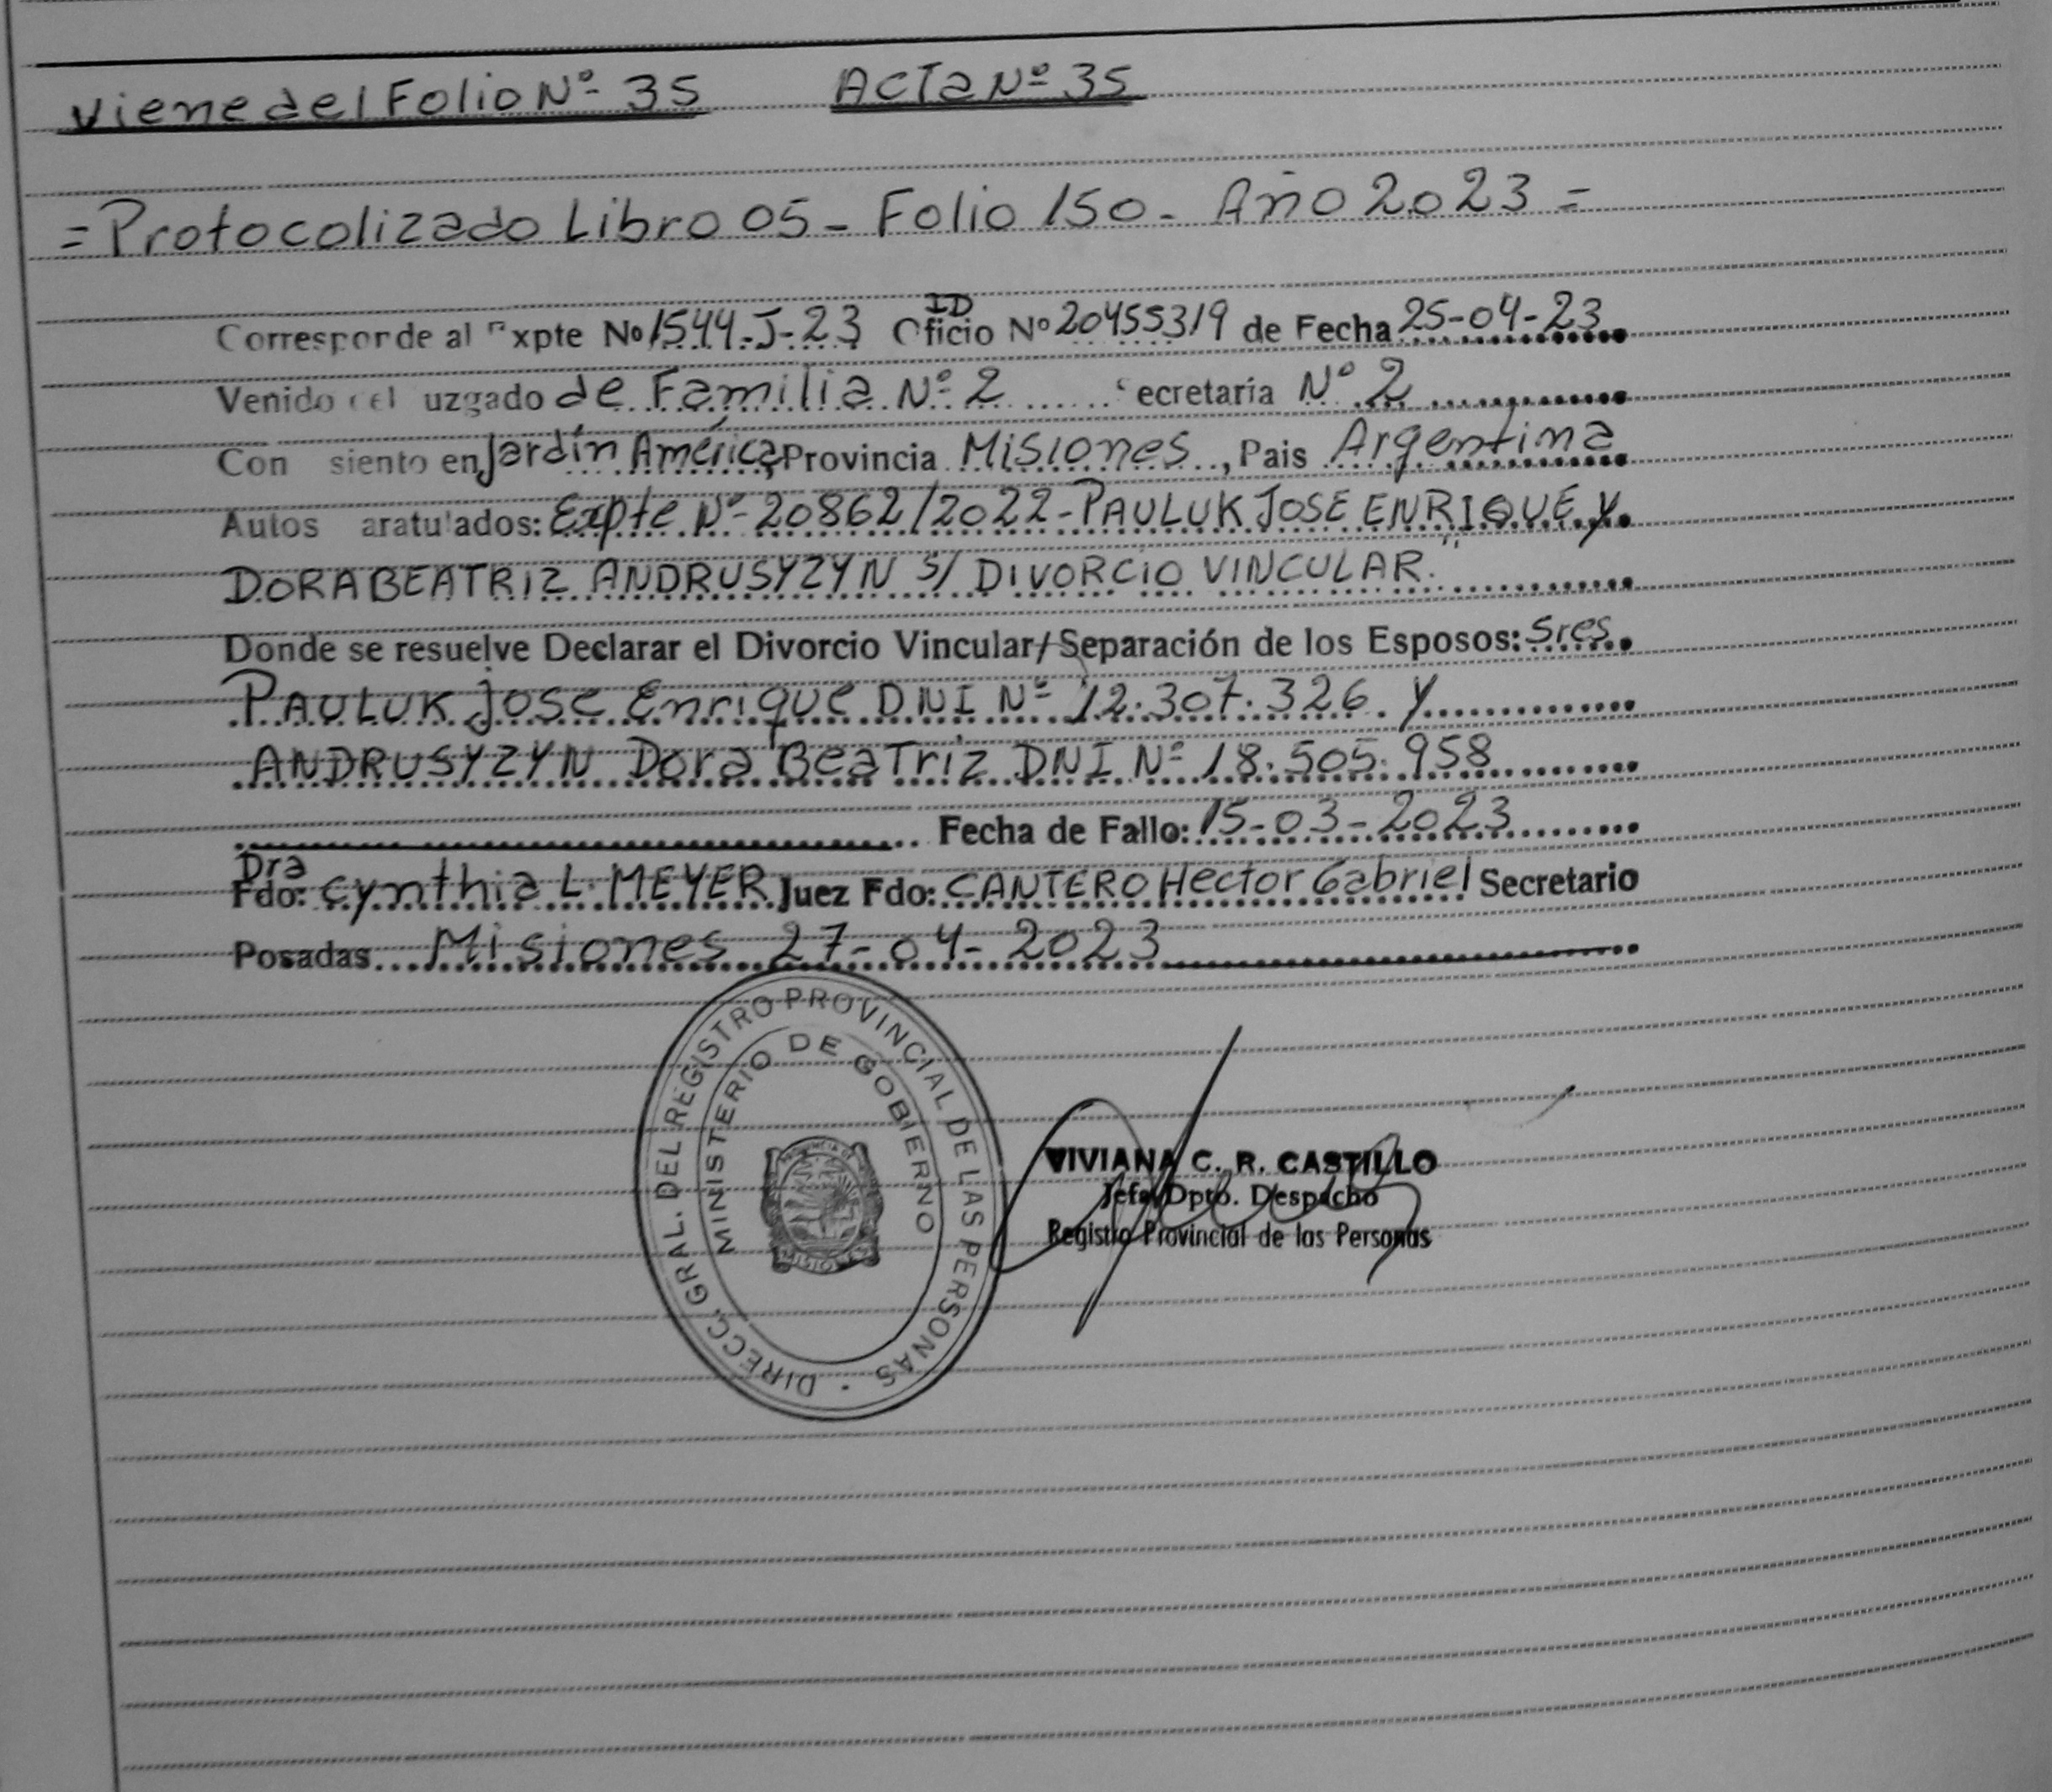 Viene del Folio Nº 35 ACTA Nº 35
= Protocolizado Libro 05 - Folio 150 - Año 2023 =
Corresponde al Expte Nº 1544-J-23 ID Oficio Nº 20455319 de Fecha 25-04-23
Venido del uzgado de Familia Nº 2 ecretaría Nº 2
Con siento en Jardín América, Provincia Misiones, Pais Argentina
Autos aratulados: Expte Nº 20862/2022 - PAULUK JOSE ENRIQUE y
DORA BEATRIZ ANDRUSYZYN S/ DIVORCIO VINCULAR."
Donde se resuelve Declarar el Divorcio Vincular/Separación de los Esposos: Sres
PAULUK Jose Enrique DNI Nº 12.307.326 y
ANDRUSYZYN Dora Beatriz DNI Nº 18.505.958
Fecha de Fallo: 15-03-2023
Dra
Fdo: Cynthia L. MEYER Juez Fdo: CANTERO Hector Gabriel Secretario
Posadas Misiones 27-04-2023
DIRECC. GRAL. DEL REGISTRO PROVINCIAL DE LAS PERSONAS
MINISTERIO DE GOBIERNO
VIVIANA C. R. CASTILLO
Jefa Dpto. Despacho
Registro Provincial de las Personas